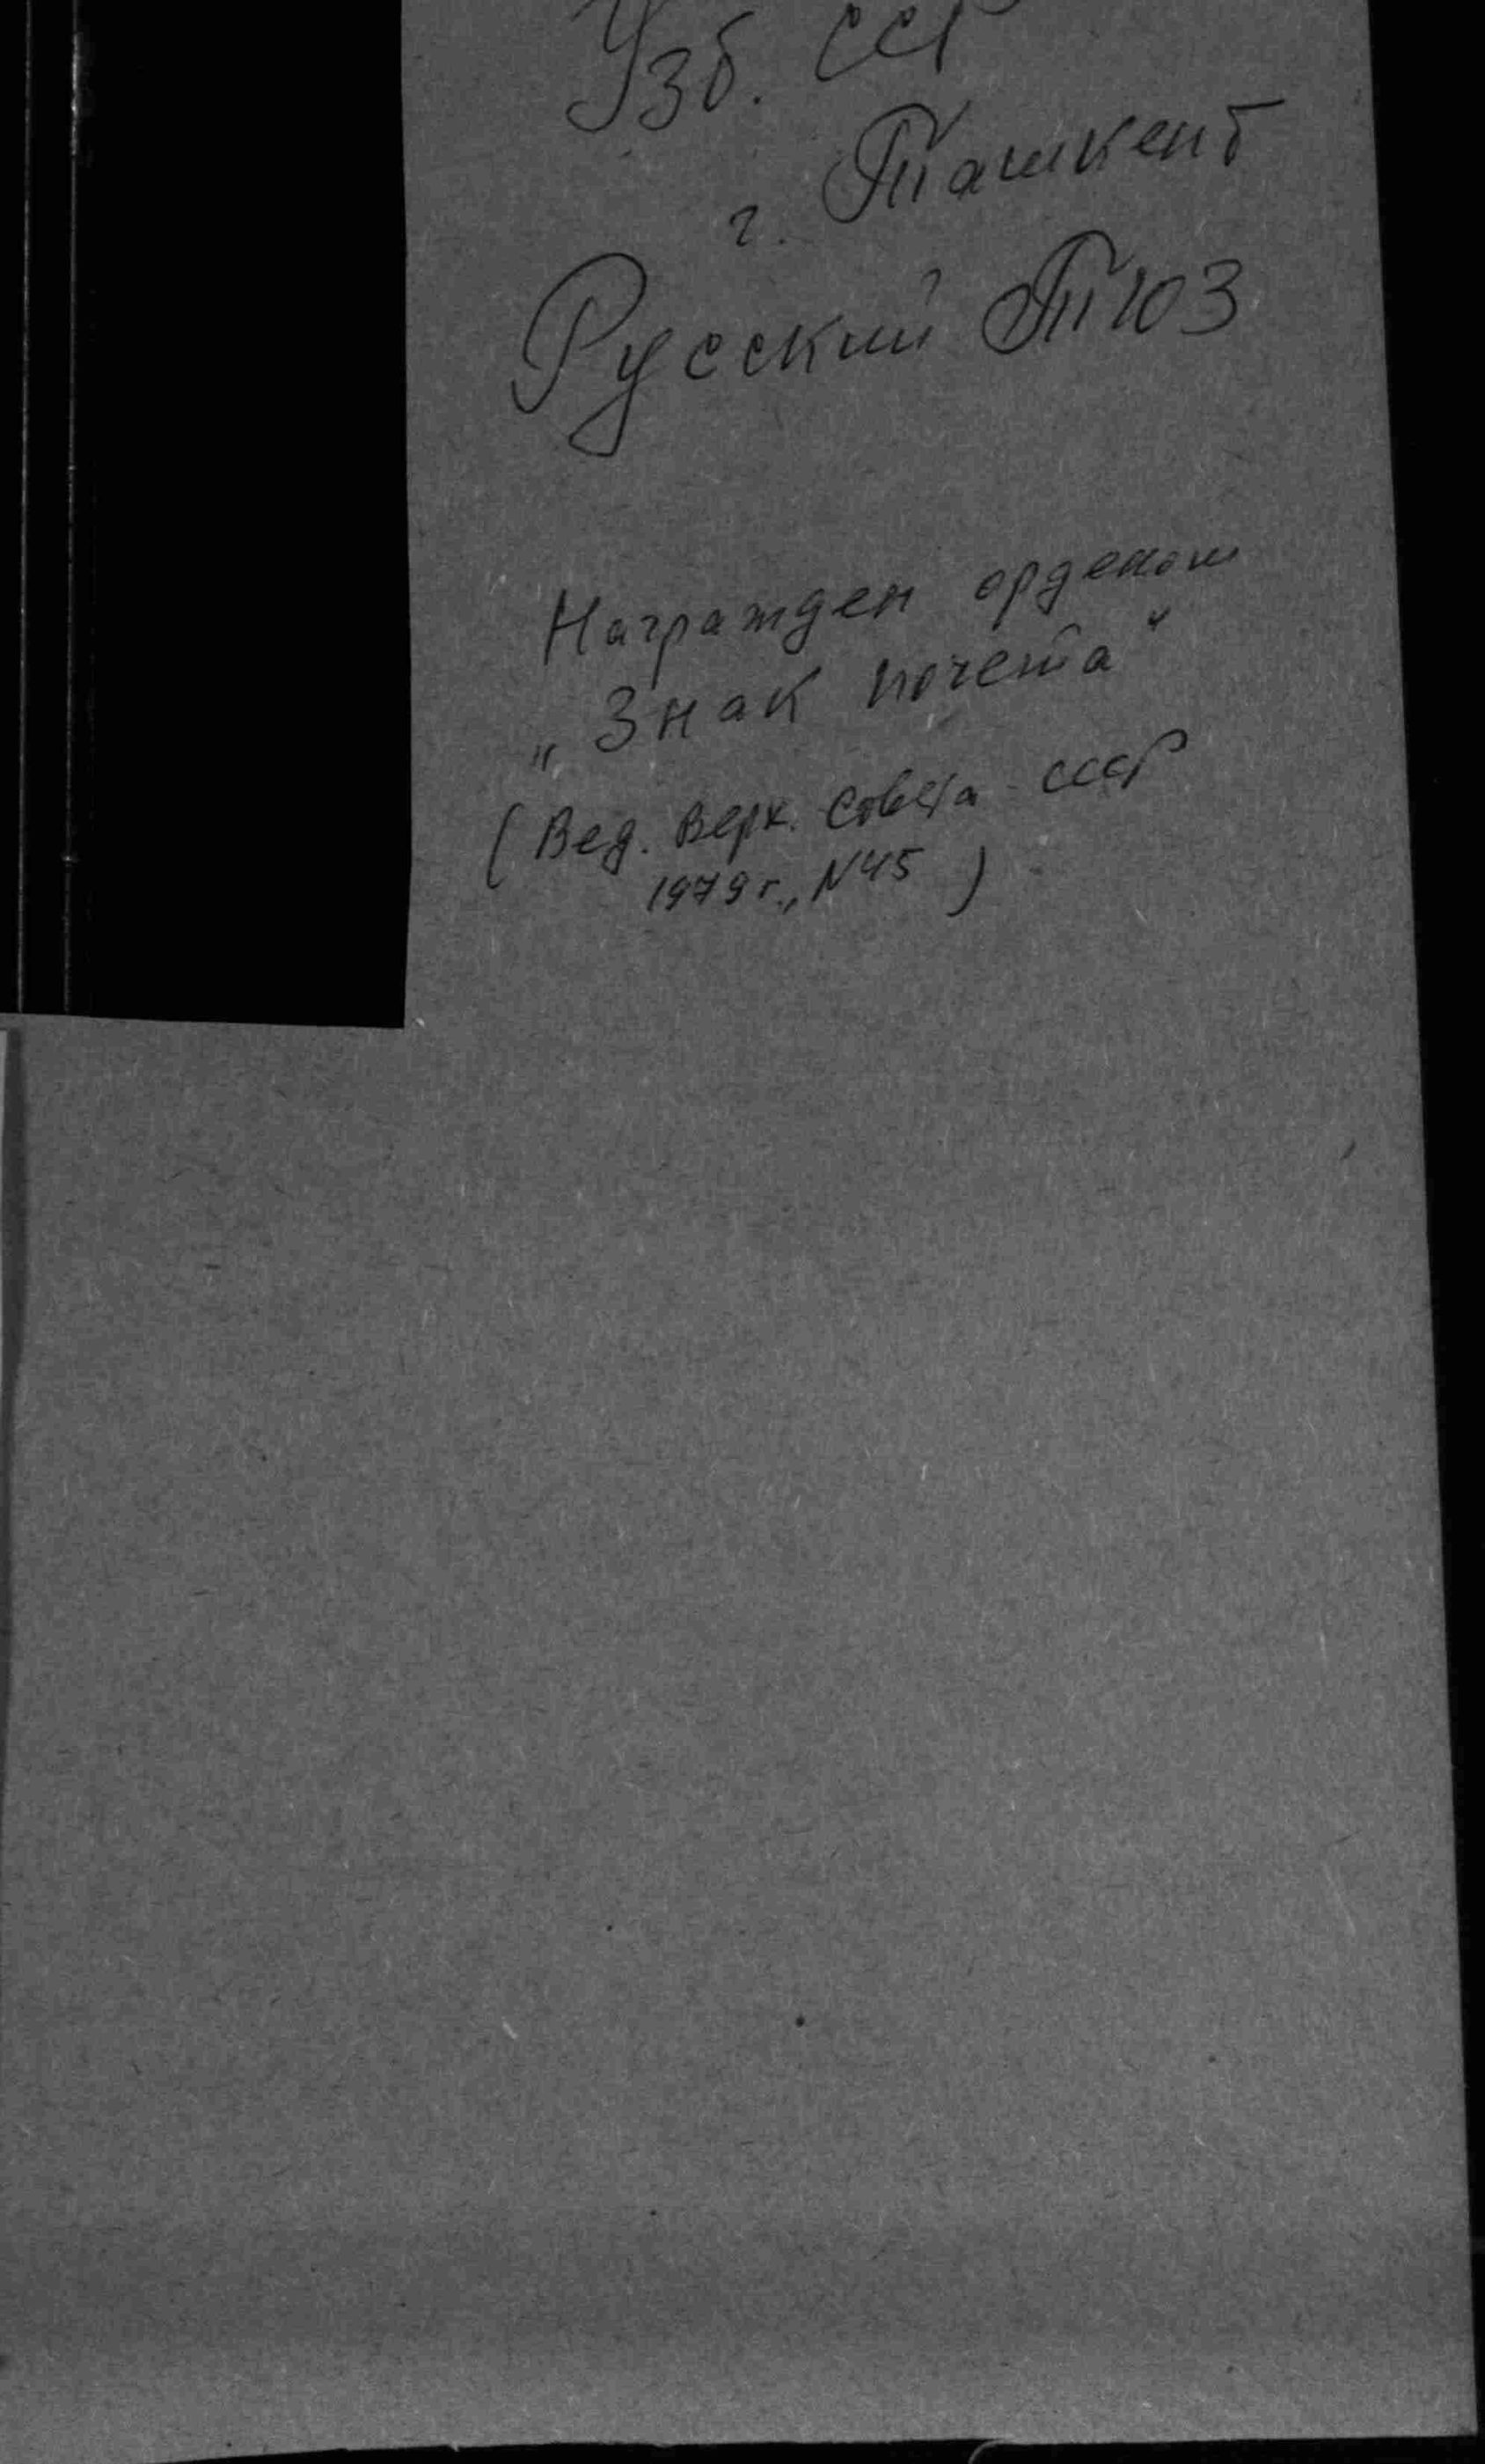 Узб. ССР
г. Ташкент
Русский ТЮЗ
Награжден орденом
„Знак почета"
(Вед. Верх. Совета СССР
1979 г., N45)